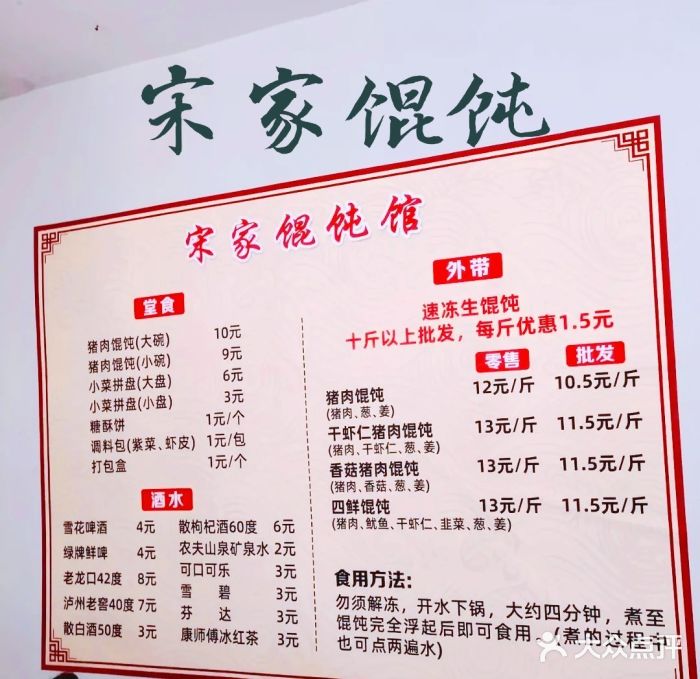 宋家馄饨
宋家馄饨馆
堂食
猪肉馄饨(大碗) 10元
猪肉馄饨(小碗) 9元
小菜拼盘(大盘) 6元
小菜拼盘(小盘) 3元
糖酥饼 1元/个
调料包(紫菜、虾皮) 1元/包
打包盒 1元/个
酒水
雪花啤酒 4元 散枸杞酒60度 6元
绿牌鲜啤 4元 农夫山泉矿泉水 2元
老龙口42度 8元 可口可乐 3元
泸州老窖40度 7元 雪碧 3元
散白酒50度 3元 芬达 3元
康师傅冰红茶 3元
外带
速冻生馄饨
十斤以上批发，每斤优惠1.5元
零售 批发
猪肉馄饨 12元/斤 10.5元/斤
(猪肉、葱、姜)
干虾仁猪肉馄饨 13元/斤 11.5元/斤
(猪肉、干虾仁、葱、姜)
香菇猪肉馄饨 13元/斤 11.5元/斤
(猪肉、香菇、葱、姜)
四鲜馄饨 13元/斤 11.5元/斤
(猪肉、鱿鱼、干虾仁、韭菜、葱、姜)
食用方法：
勿须解冻，开水下锅，大约四分钟，煮至
馄饨完全浮起后即可食用。(煮的过程中
也可点两遍水)
大众点评